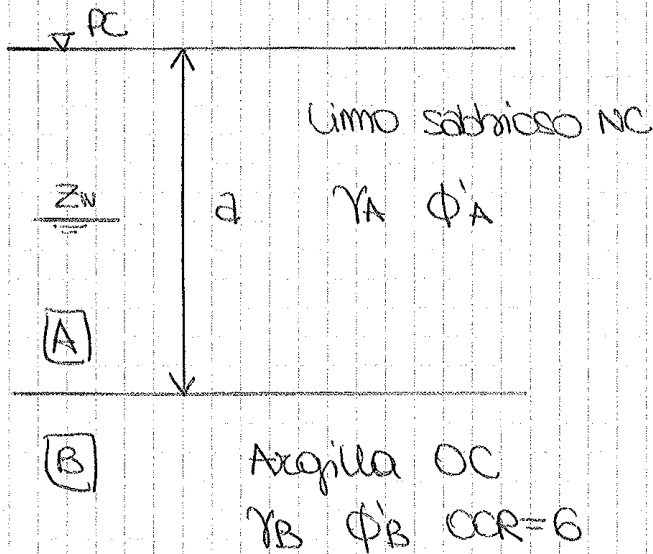 PC
Limo sabbioso NC
Zw
a
γA ϕ'A
A
B
Argilla OC
γB ϕ'B OCR=6